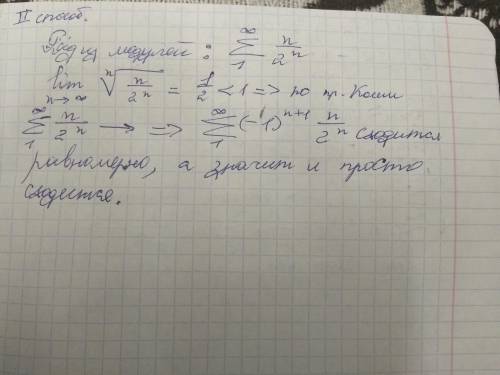 II способ.
Ряд из модулей: \sum_{1}^{\infty} \frac{n}{2^n}
\lim_{n \to \infty} \sqrt[n]{\frac{n}{2^n}} = \frac{1}{2} < 1 => по пр. Коши
\sum_{1}^{\infty} \frac{n}{2^n} \to => \sum_{1}^{\infty} (-1)^{n+1} \frac{n}{2^n} сходится
равномерно, а значит и просто
сходится.